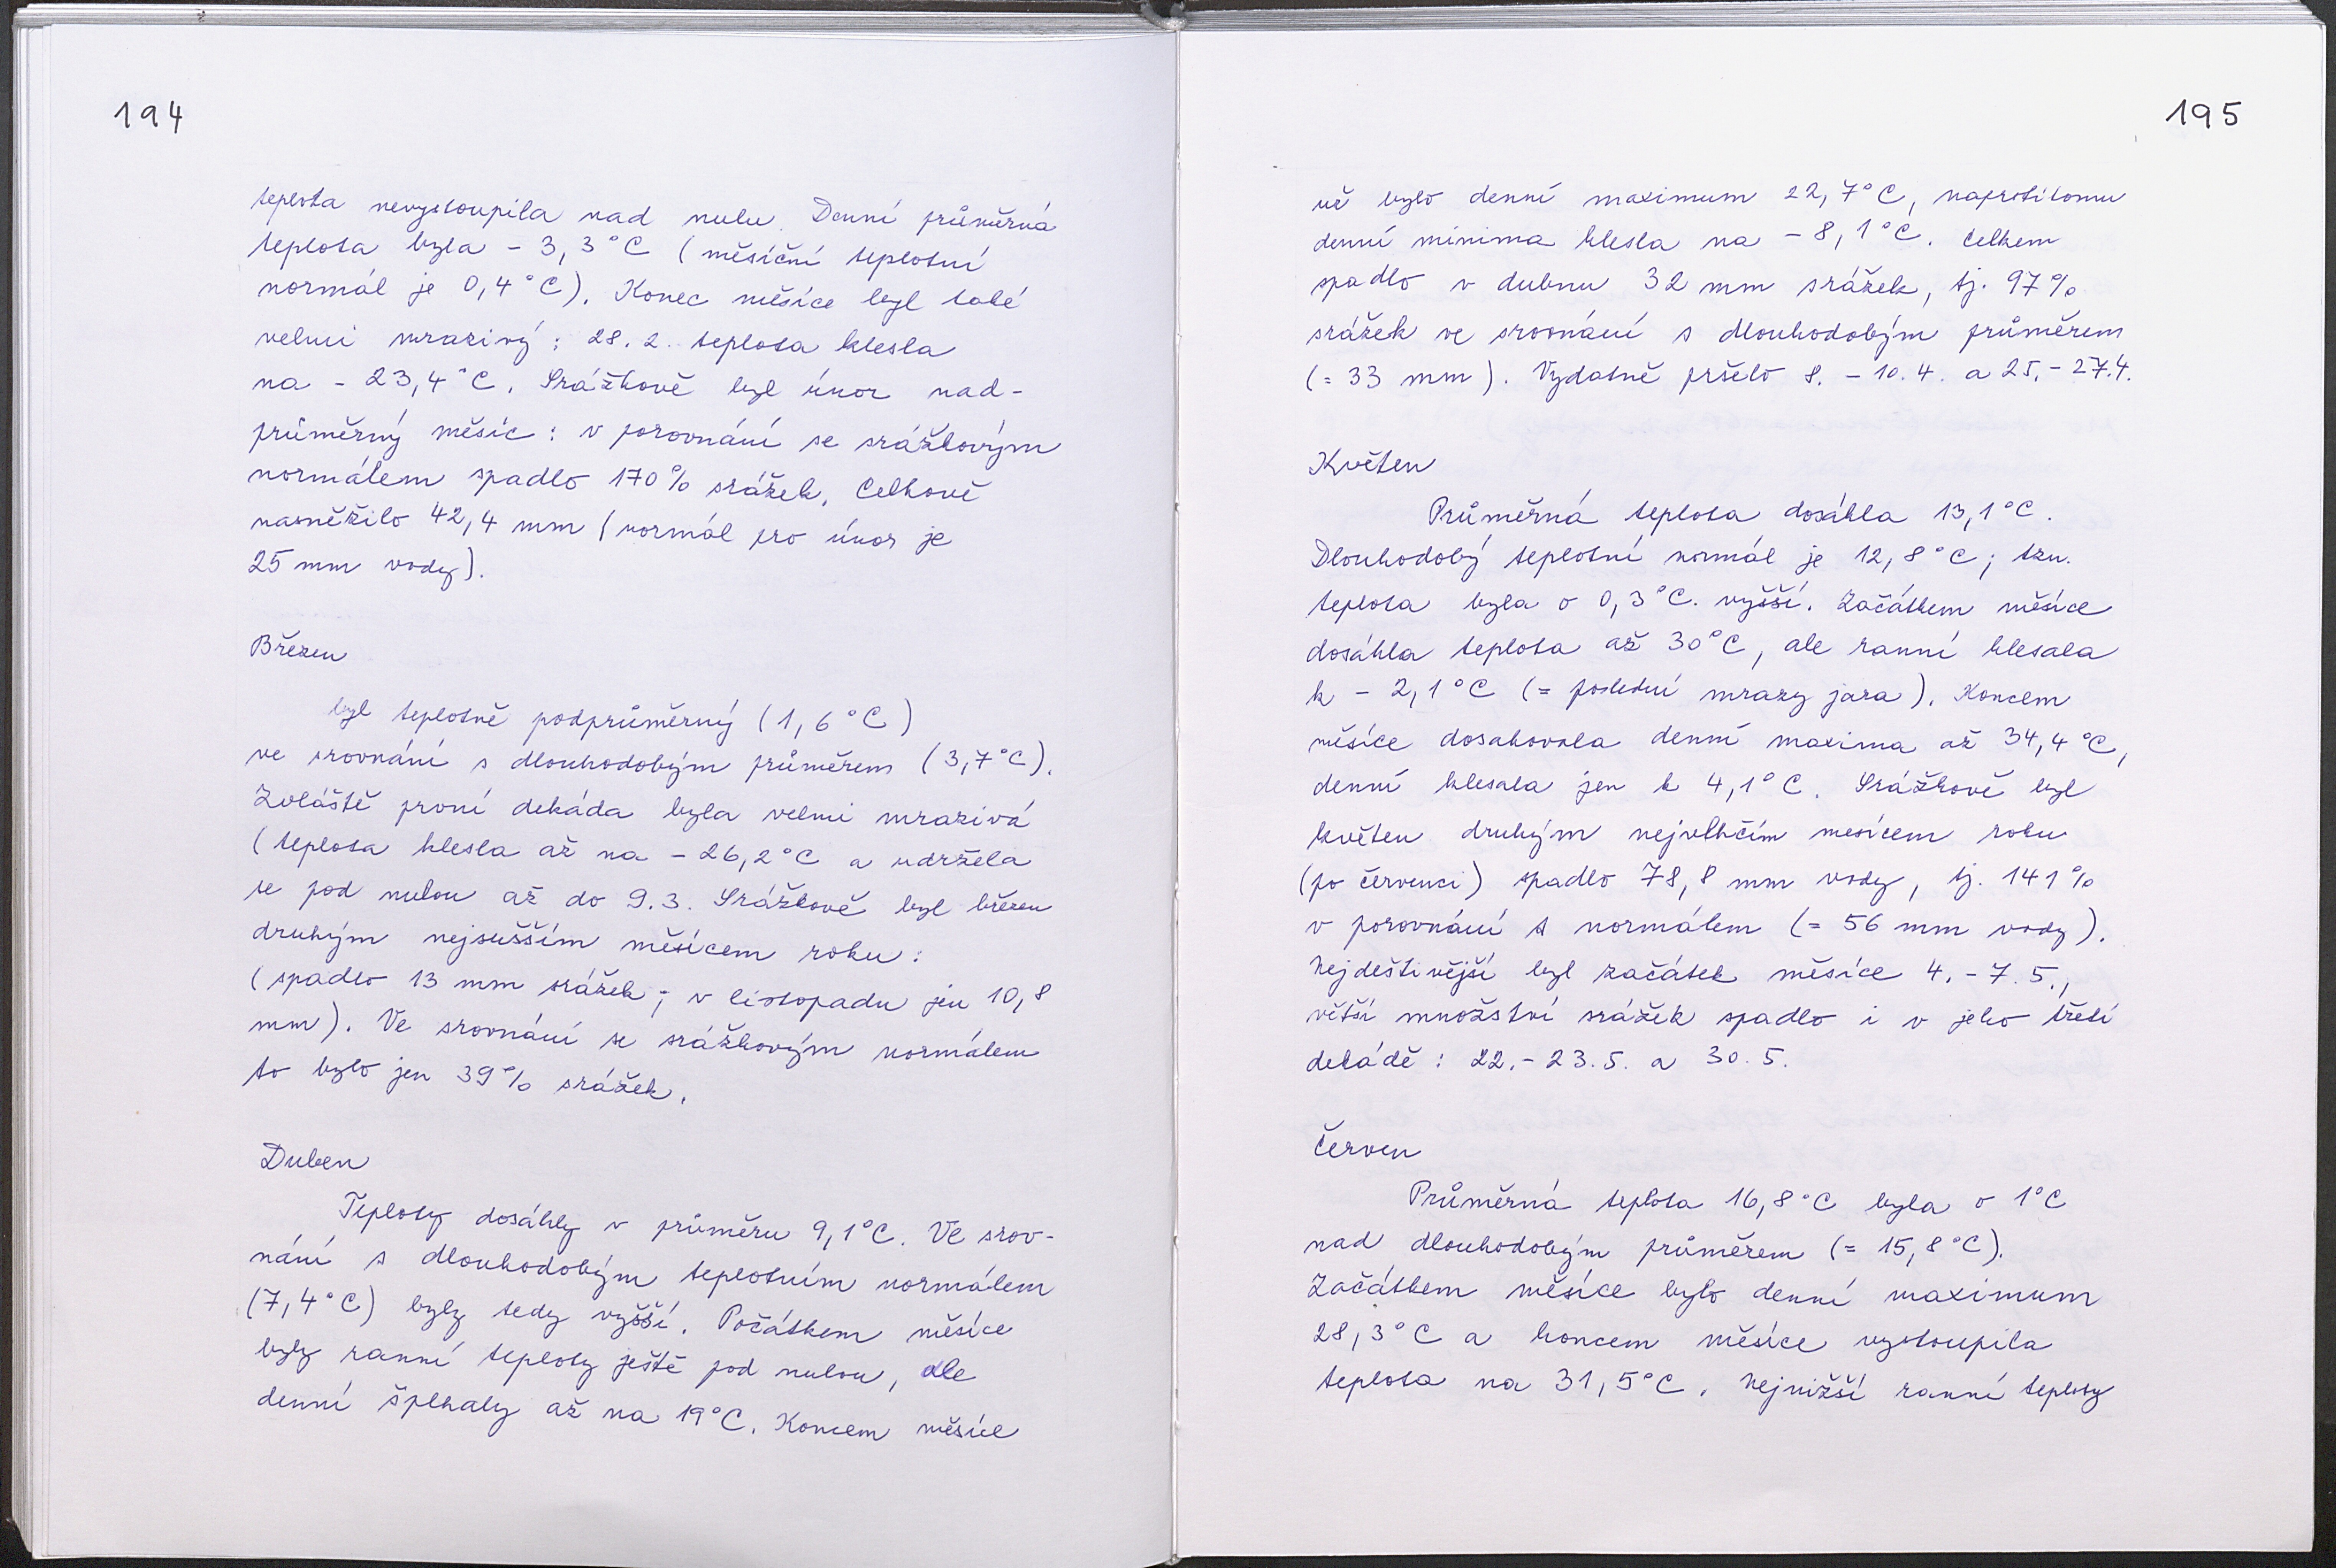 194
teplota nevystoupila nad nulu. Denní průměrná
teplota byla - 3,3°C (měsíční teplotní
normál je 0,4°C). Konec měsíce byl také
velmi mrazivý: 28. 2. teplota klesla
na - 23,4°C. Srážkově byl únor nad-
průměrný měsíc: v porovnání se srážkovým
normálem spadlo 170% srážek. Celkově
nasněžilo 42,4 mm (normál pro únor je
25 mm vody).
Březen
byl teplotně podprůměrný (1,6°C)
ve srovnání s dlouhodobým průměrem (3,7°C).
Zvláště první dekáda byla velmi mrazivá
(teplota klesla až na - 26,2°C a udržela
se pod nulou až do 9.3. Srážkově byl březen
druhým nejsušším měsícem roku:
(spadlo 13 mm srážek; v listopadu jen 10,8
mm). Ve srovnání se srážkovým normálem
to bylo jen 39% srážek.
Duben
Teploty dosáhly v průměru 9,1°C. Ve srov-
nání s dlouhodobým teplotním normálem
(7,4°C) byly tedy vyšší. Počátkem měsíce
byly ranní teploty ještě pod nulou, ale
denní šplhaly až na 19°C. Koncem měsíce
195
vě bylo denní maximum 22,7°C, naprotitomu
denní minima klesla na - 8,1°C. Celkem
spadlo v dubnu 32 mm srážek, tj. 97%
srážek ve srovnání s dlouhodobým průměrem
(= 33 mm). Vydatně pršelo 8. - 10. 4. a 25. - 27.4.
Květen
Průměrná teplota dosáhla 13,1°C.
Dlouhodobý teplotní normál je 12,8°C; tzn.
teplota byla o 0,3°C. vyšší. Začátkem měsíce
dosáhla teplota až 30°C, ale ranní klesala
k - 2,1°C (= poslední mrazy jara). Koncem
měsíce dosahovala denní maxima až 34,4°C,
denní klesala jen k 4,1°C. Srážkově byl
květen druhým nejvlhčím mesícem roku
(po červenci) spadlo 78,8 mm vody, tj. 141%
v porovnání s normálem (= 56 mm vody).
Nejdeštivější byl začátek měsíce 4. - 7. 5.,
větší množství srážek spadlo i v jeho třetí
dekádě: 22. - 23. 5. a 30. 5.
Červen
Průměrná teplota 16,8°C byla o 1°C
nad dlouhodobým průměrem (= 15,8°C).
Začátkem měsíce bylo denní maximum
28,3°C a koncem měsíce vystoupila
teplota na 31,5°C. Nejnižší ranní teploty